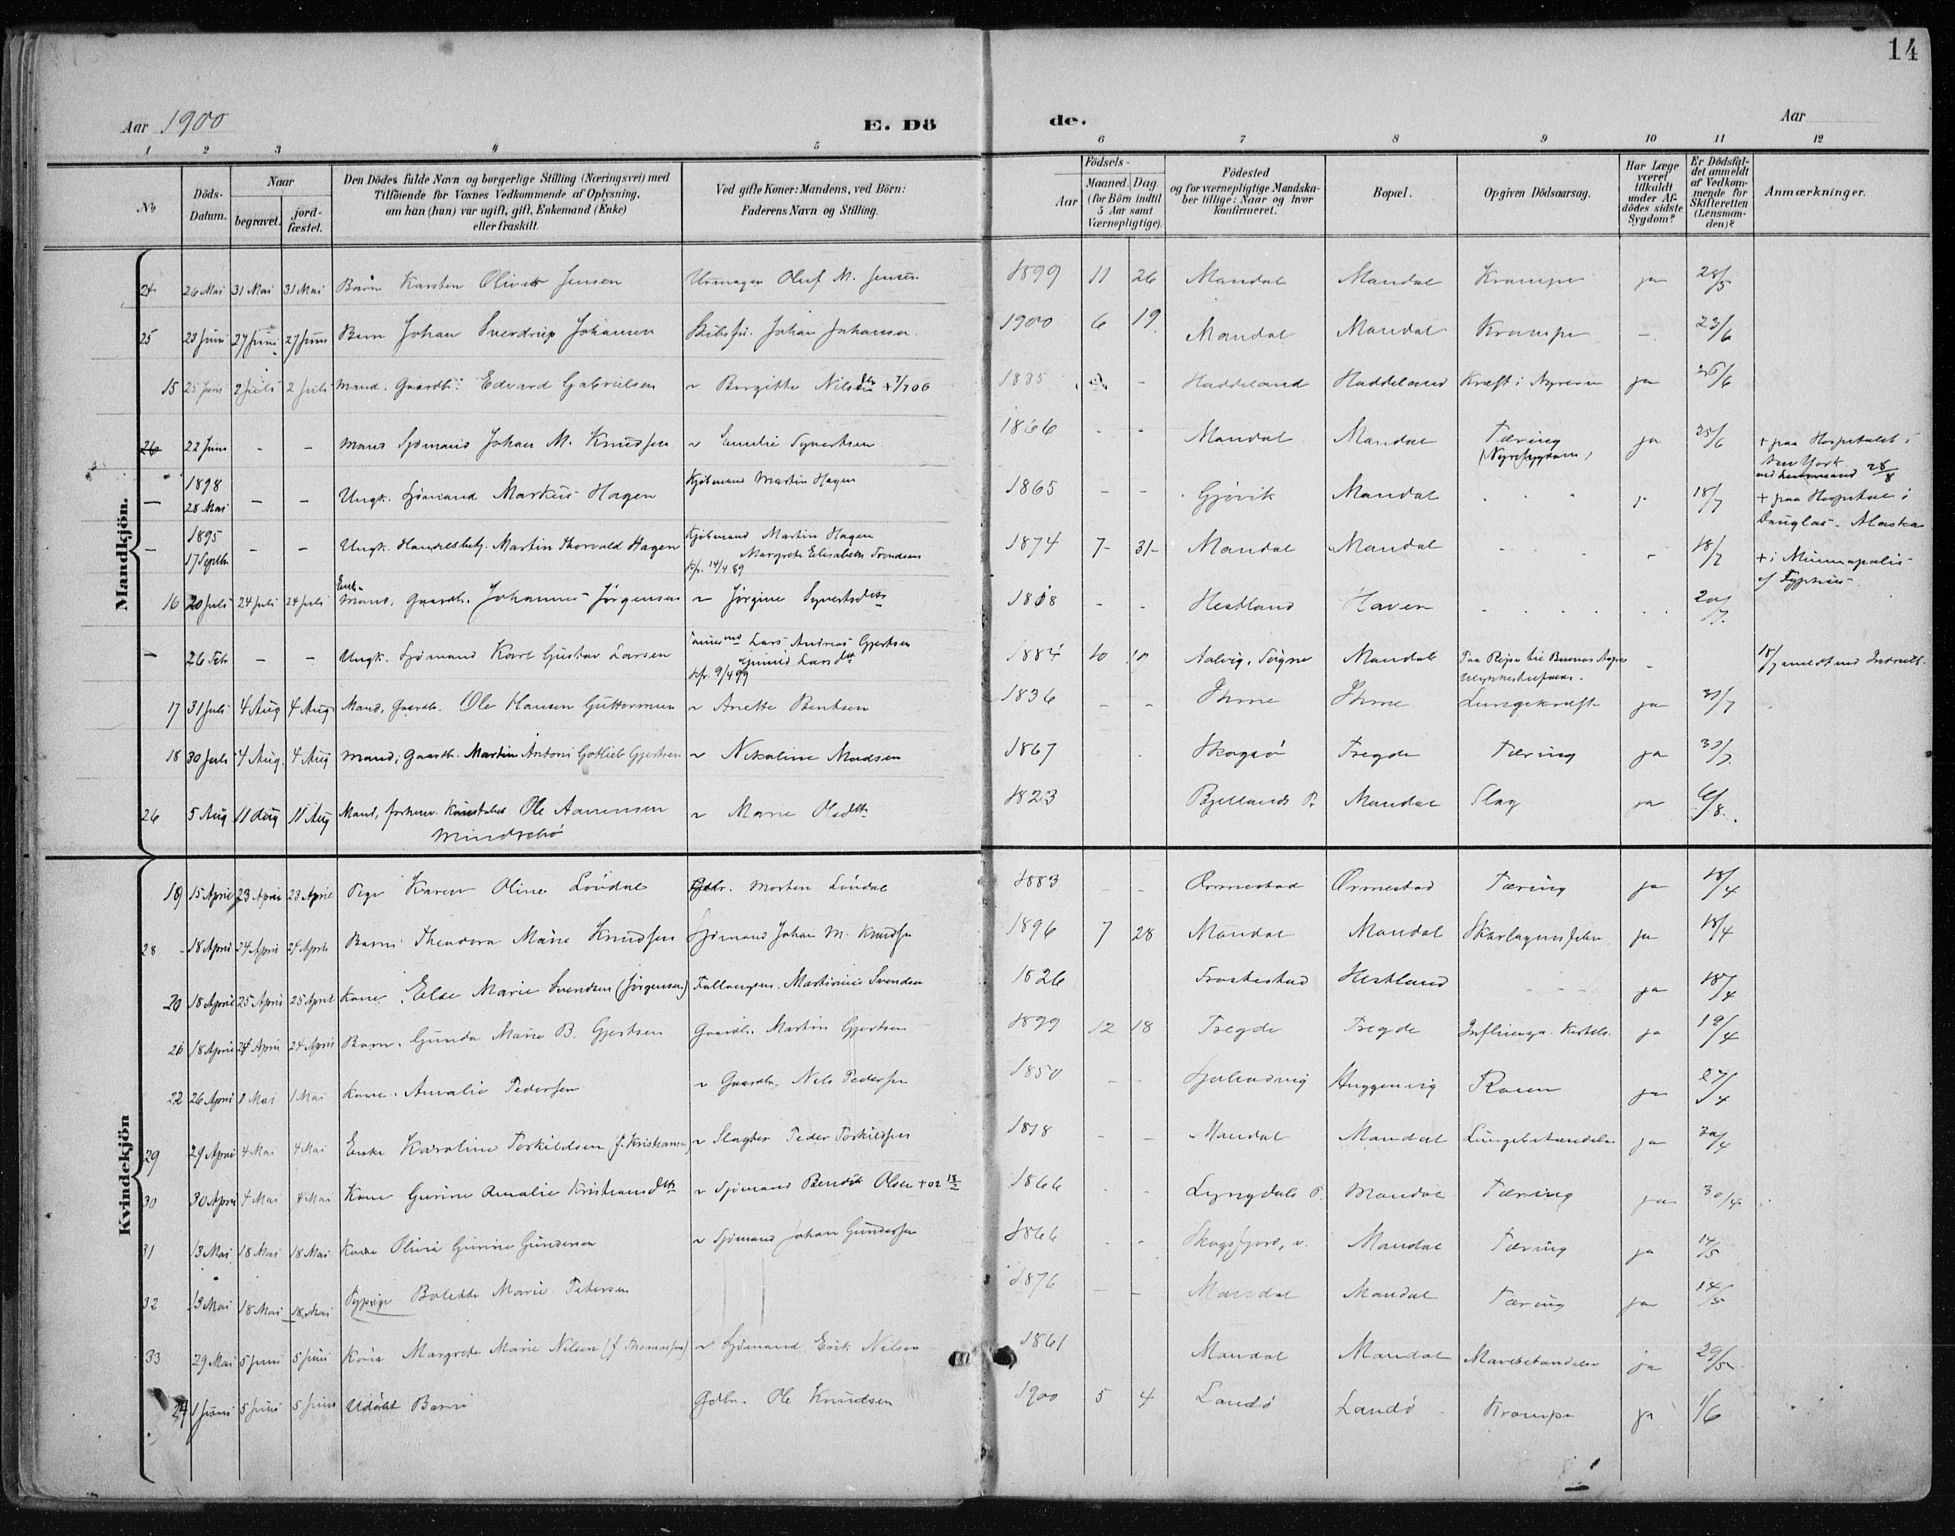 14
Aar 1900 E. Dö de. Aar
1 2 3 4 5 6 7 8 9 10 11 12
No
Döds-Datum.
Naar
begravet.
jord-fæstet.
Den Dödes fulde Navn og borgerlige Stilling (Næringsvei) med
Tilföiende for Voxnes Vedkommende af Oplysning,
om han (hun) var ugift, gift, Enkemand (Enke)
eller fraskilt.
Ved gifte Koner: Mandens, ved Börn:
Faderens Navn og Stilling.
Aar
Födsels-
Maaned. Dag
(for Börn indtil
5 Aar samt
Værnepligtige).
Födested
og for værnepligtige Mandska-
ber tillige: Naar og hvor
konfirmeret.
Bopæl.
Opgiven Dödsaarsag.
Har Læge
været
tilkaldt
under Af-
dödes sidste
Sygdom?
Er Dödsfal-
det anmeldt
af Vedkom-
mende for
Skifteretten
(Lensman-
den)?
Anmærkninger.
Mandkjön.
24 26 Mai 31 Mai 31 Mai Barn Karsten Oliver Jensen Urmager Oluf M. Jensen 1899 11 26 Mandal Mandal Krampe ja 28/5
25 23 Juni 27 Juni 27 Juni Barn Johan Sverdrup Johansen Johan Johansen 1900 6 19 Mandal Mandal Krampe - 23/6
15 25 Juni 2 Juli 2 Juli Mand. Gaardb. Edvard Gabrielsen ~ Birgitte Nilsdtr + 7/7 06 1835 - Haddeland Haddeland Kræft i Nyrerne ja 26/6
26 22 Juni - - Mand Sjømand Johan M. Knudsen ~ Emilie Syvertsen 1866 - - Mandal Mandal Tæring ja 25/6 + paa Hospitalet i
(Nyresygdom) New York
28/8
- 1898 28 Mai - - Ungk. Sjømand Markus Hagen Kjøbmand Martin Hagen 1865 - - Gjøvik Mandal " " " 18/7 + paa Hospital i
Douglas - Alaska
- 1895 17 Septbr - - Ungk. Handelsbetj. Martin Thorvald Hagen Kjøbmand Martin Hagen
Margrete Elisabeth
kfr. 14/4 89 1874 7 - 31 - Mandal Mandal - 18/7 + i Minneapolis
af Typhus
16 20 Juli 24 Juli 24 Juli Enke-
Mand, Gaardb. Johannes Jørgensen ~ Jørgine Syvertsdtr 1818 - - Hestland Haven 20/7
- 26 Feb - - Ungk. Sjømand Karl Gustav Larsen Lars Andreas Gjertsen
Gunild Larsdtr
kfr. 9/4 99 1884 10 10 Aalvig, Søgne Mandal Paa Rejse til Buenos Ayres - 18/7
17 31 Juli 4 Aug 4 Aug Mand, Gaardb. Ole Hansen Guttormsen ~ Anette Bentsen 1836 - - Ihme Ihme Lungekræft ja 31/7
18 30 Juli 4 Aug. 4 Aug Mand, Gaardb. Martin Antoni Gotlieb Gjertsen ~ Nikoline Madsen 1867 - Skogsø Tregde Tæring ja 30/7
26 5 Aug 11 Aug 11 Aug Mand, forhenv. Ole Aanensen
Mindrebø ~ Marie Olsdtr 1823 Bjellands P. Mandal Slag ja 6/8
Kvindekjön
19 15 April 23 April 23 April Pige Karen Oline Londal Gbr. Morten Londal 1883 - - Ormestad Ormestad Tæring ja 18/4
28 18 April 24 April 24 April Barn Theodora Marie Knudsen Sjømand Johan M. Knudsen 1896 7 28 Mandal Mandal Skarlagensfeber ja 18/4
20 18 April 25 April 25 April Kone Else Marie Svendsen (Jørgensen) Martinius Svendsen 1826 Frostestad Hestland - - - ja 18/4
21 18 April 24 April 24 April Barn. Gunda Marie B. Gjertsen Gaardb. Martin Gjertsen 1899 12 18 Tregde Tregde Influenza ja 19/4
22 26 April 1 Mai 1 Mai Kone. Amalie Pedersen ~ Gaardb. Nils Pedersen 1850 - - Huggenvig Rosen ja 27/4
29 29 April 4 Mai 4 Mai Enke Karoline Torkildsen f. Kristiansen ~ Slagter Peder Torkildsen 1818 - - Mandal Mandal Lungebetændelse ja 30/4
30 30 April 4 Mai 4 Mai Kone Gurine Amalie Kristiansdtr ~ Sjømand Bendik Olsen + 02 18/2 1866 - - Lyngdals P. Mandal Tæring ja 30/4
31 13 Mai 18 Mai 18 Mai Kone Olivia Gurine Gundersen ~ Sjømand Johan Gundersen 1866 - - Skogsfjord, Mandal Tæring ja 14/5
32 13 Mai 18 Mai 18 Mai Sypige Bolette Marie Petersen 1876 - - Mandal Mandal Tæring ja 14/5
33 29 Mai 5 Juni 5 Juni Kone Margrete Marie Nilsen (f. Thomassen) ~ Sjømand Erik Nilsen 1861 Mandal Mandal Mavebetændelse ja 29/5
24 1 Juni 5 Juni 5 Juni Udøbt Barn Gdbr. Ole Knudsen 1900 5 4 Landø Landø Krampe ja 1/6